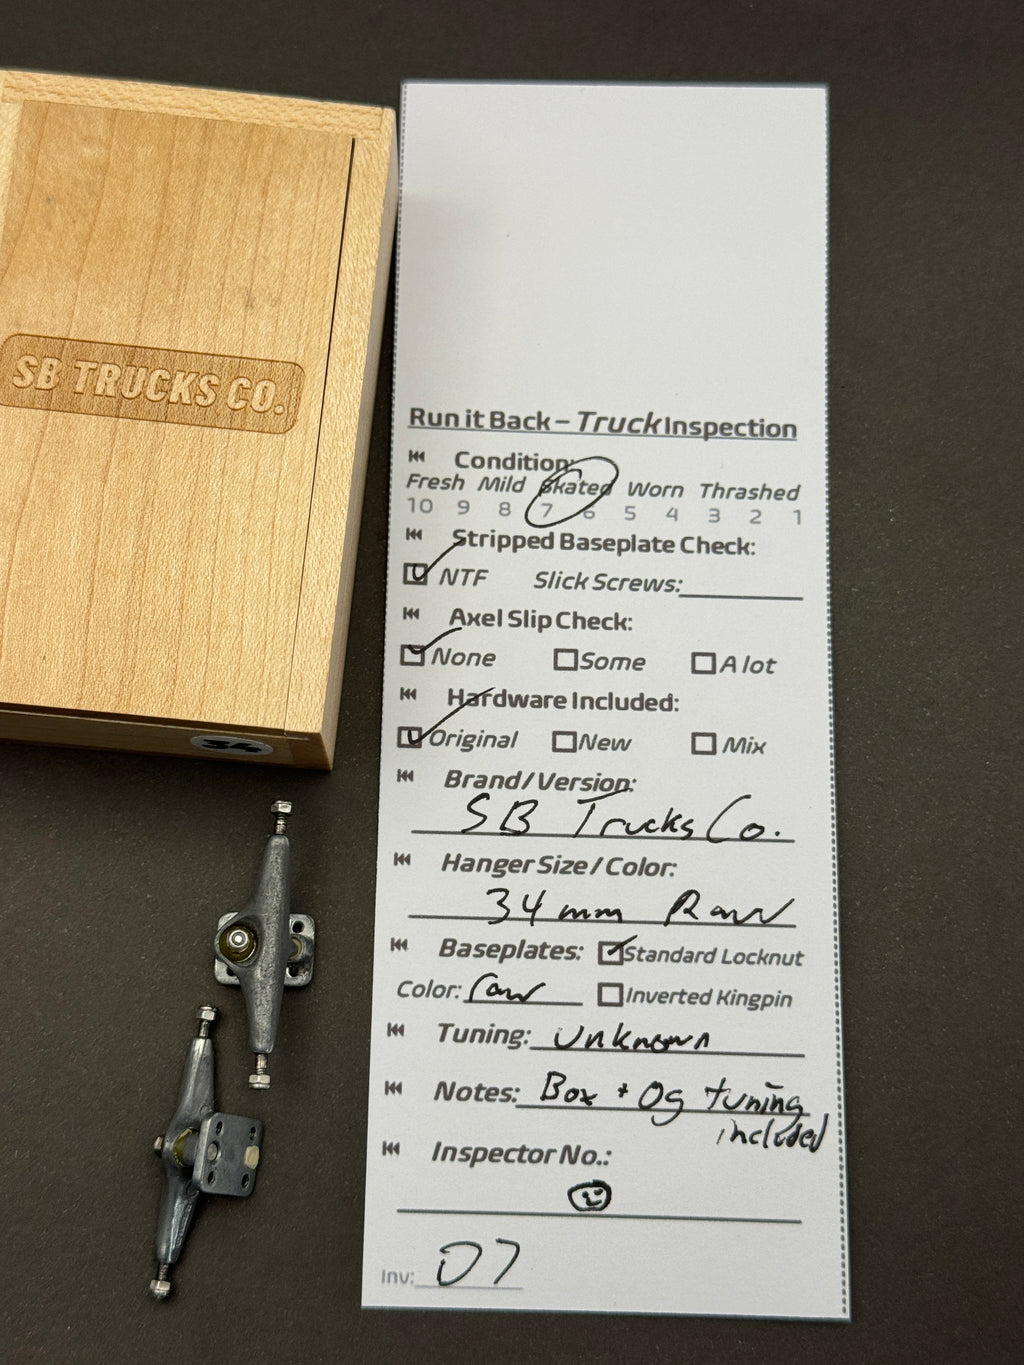 SB TRUCKS CO.
34
Run it Back – Truck Inspection
Condition:
Fresh Mild Skated Worn Thrashed
10 9 8 7 6 5 4 3 2 1
Stripped Baseplate Check:
NTF Slick Screws:
Axel Slip Check:
None Some A lot
Hardware Included:
Original New Mix
Brand/Version:
SB Trucks Co.
Hanger Size / Color:
34mm Raw
Baseplates: Standard Locknut
Color: raw Inverted Kingpin
Tuning: Unknown
Notes: Box + Og tuning
included
Inspector No.:
Inv: 07